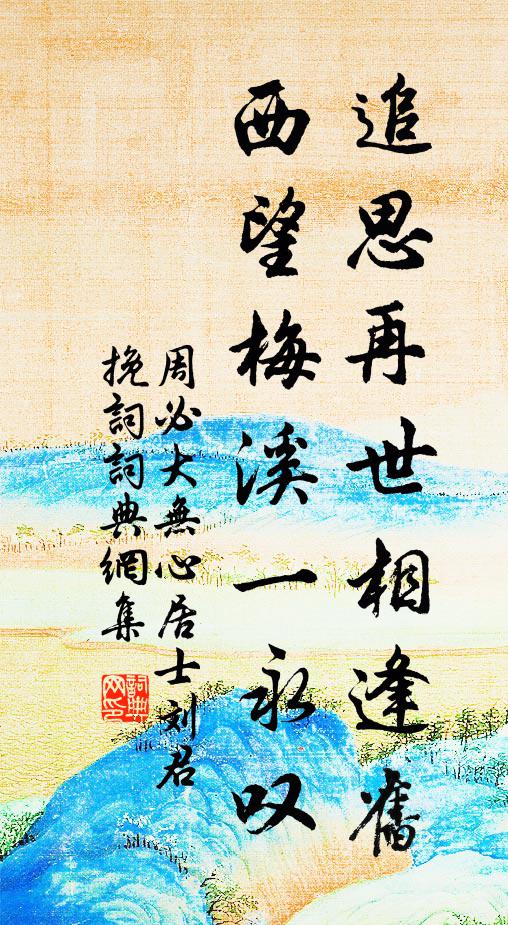 追思再世相逢舊
西望梅溪一永叹
周必大無心居士刘君
挽詞詞典網集
詞典网印